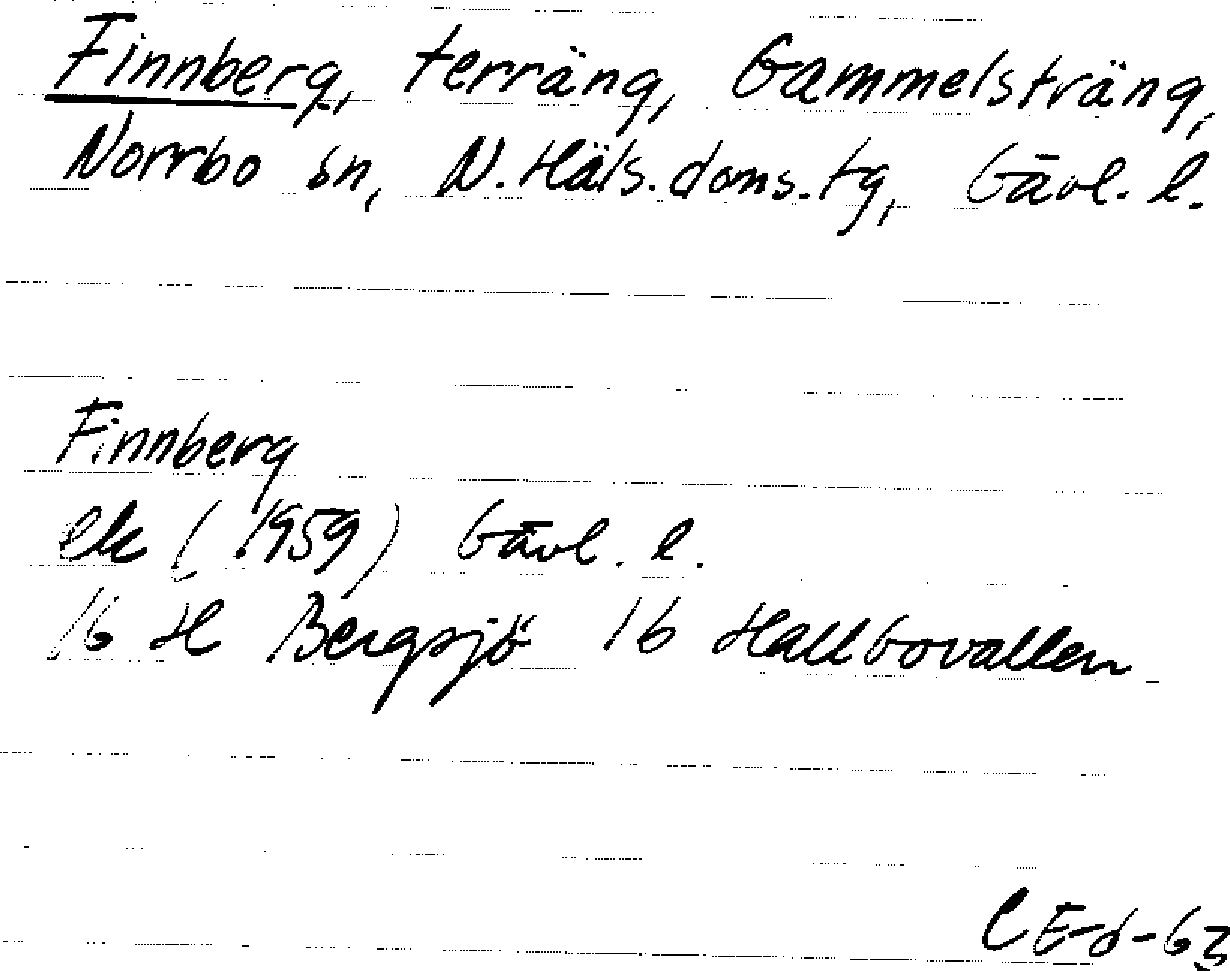 Finnberg, terräng, Gammelsträng,
Norrbo sn, N. Häls. doms. tg, Gävl. l.
Finnberg
ek (1959) Gävl. l.
16 H Bergsjö 1b Hallbovallen
CE-d-63